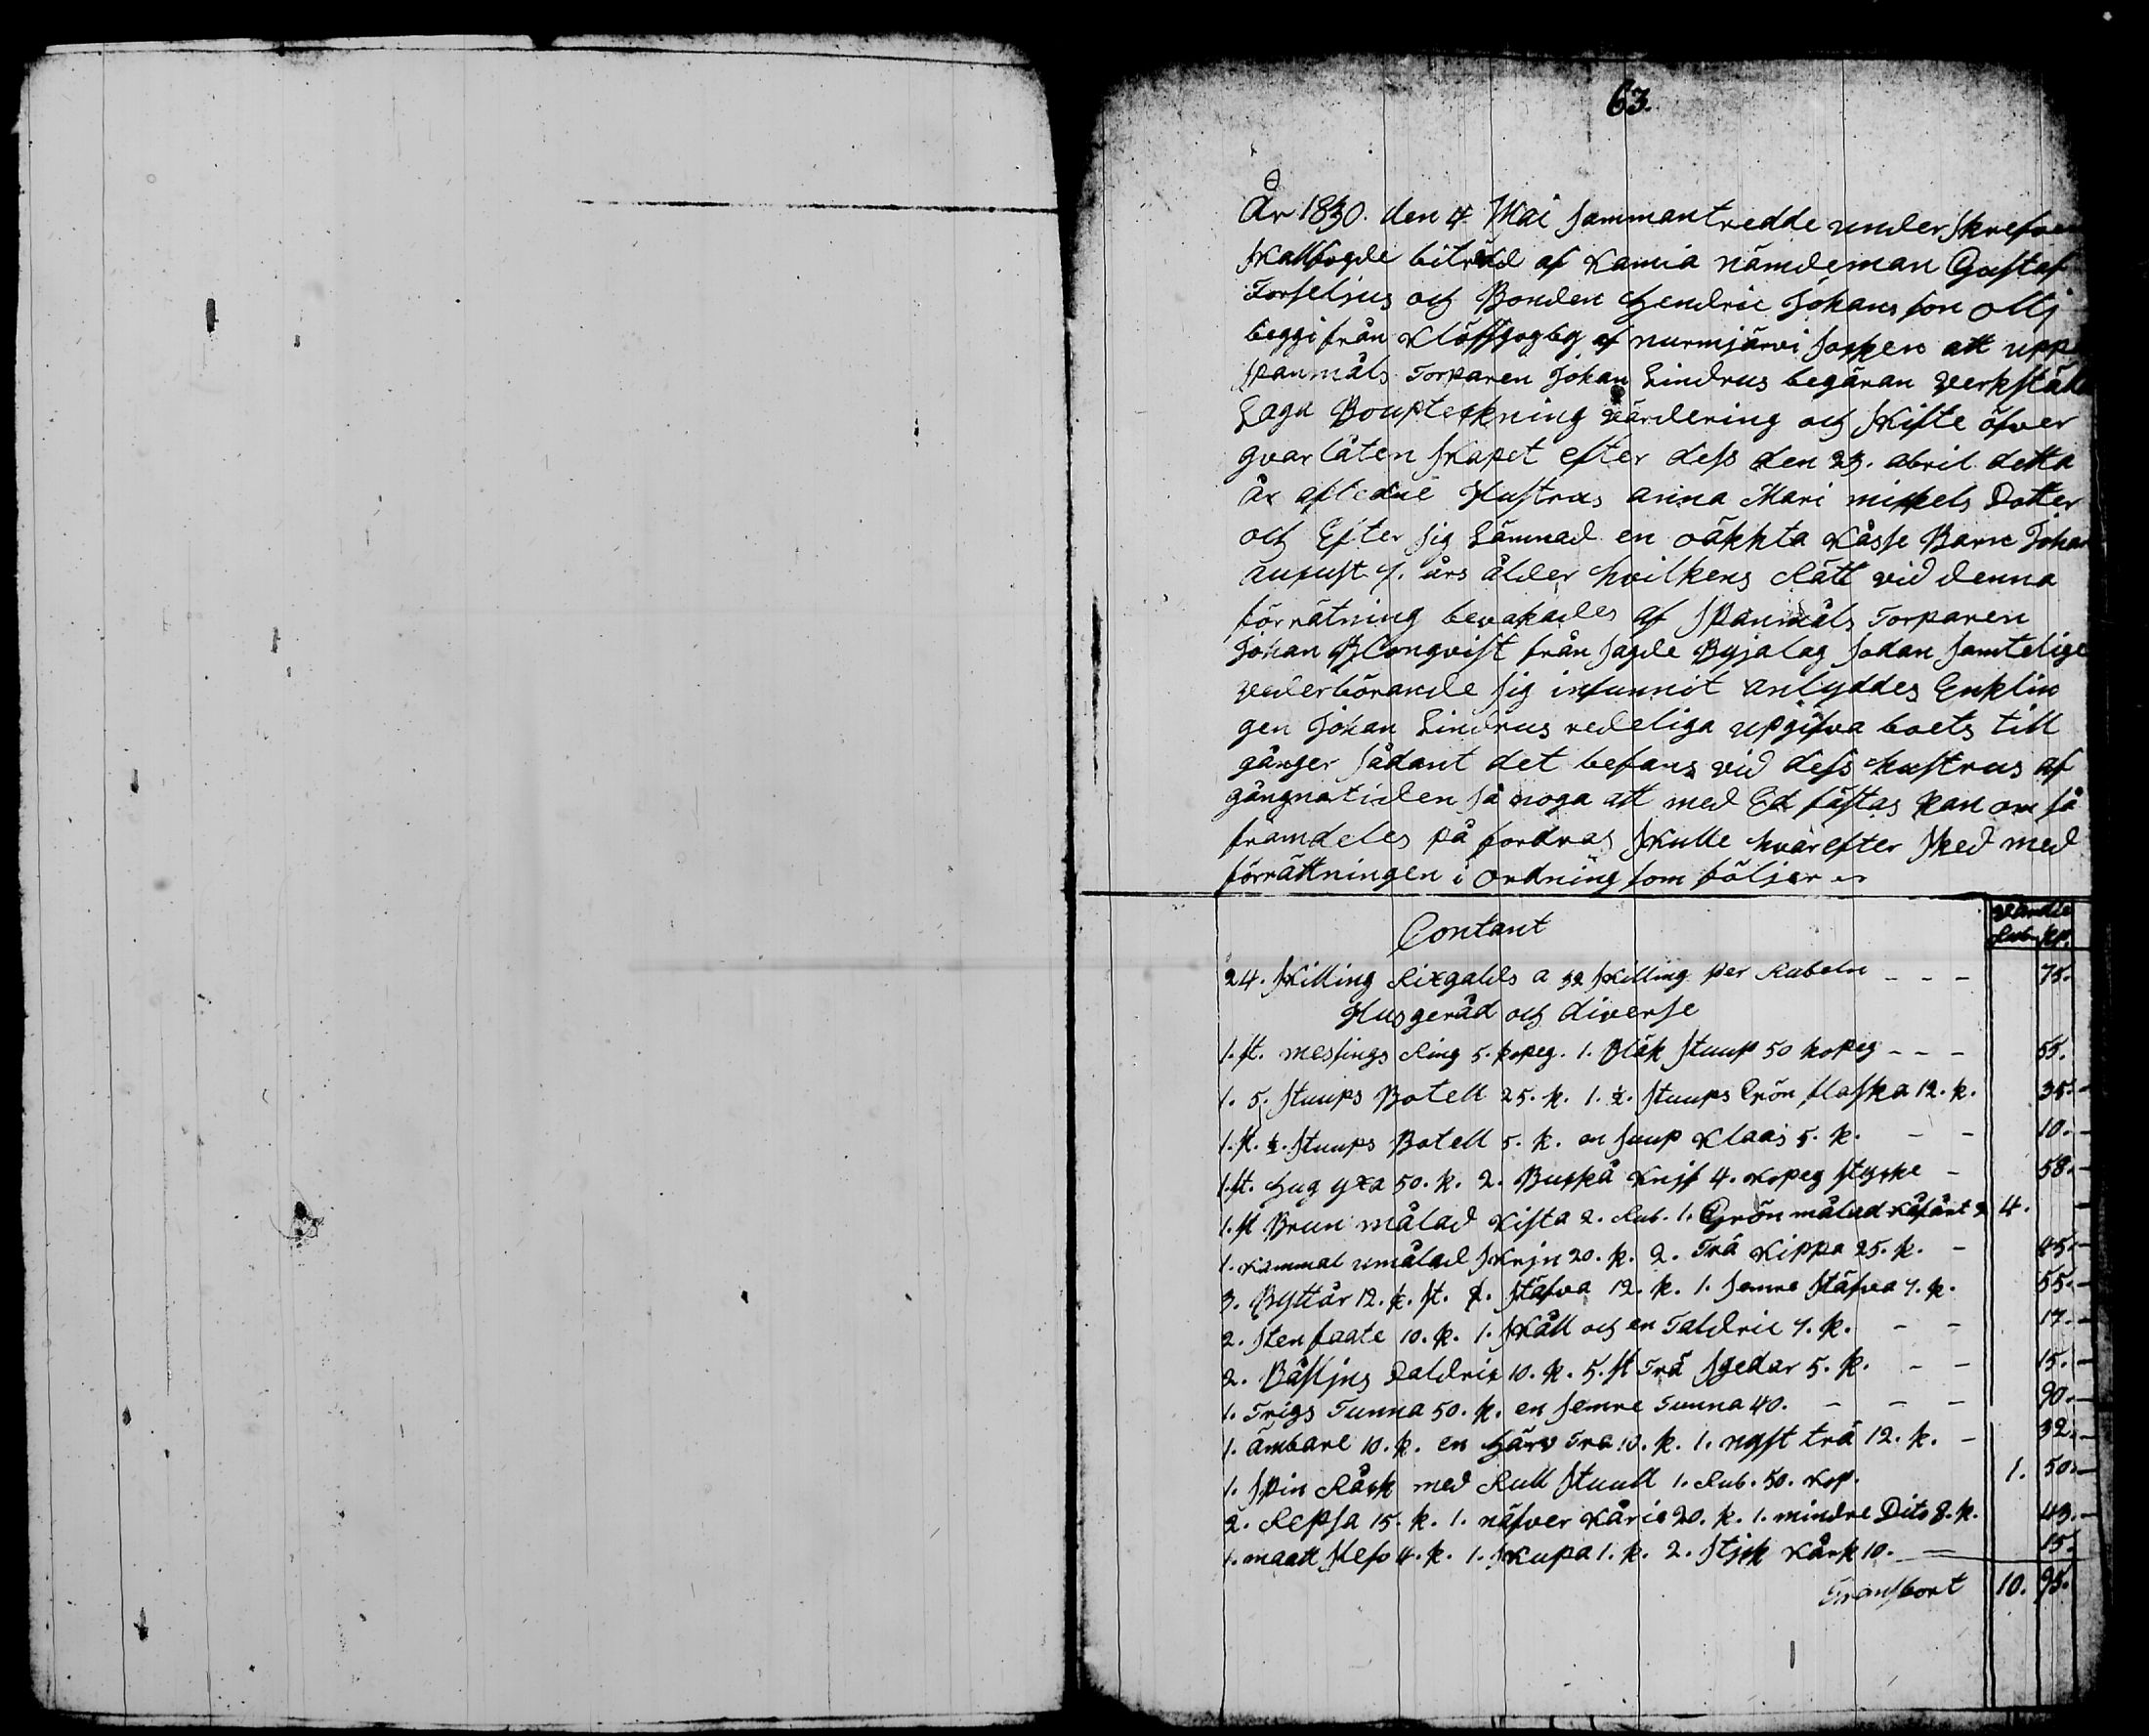 63.
År 1830. den 4 Mai sammantredde underskrefven
skallfogde biträd af Kamia nämdeman Gustaf
Forseljus och Bonden Hendric Johans son Olli
beggi från Klöfskogby af nurmjärvi socken att uppå
spanmåls Torparen Johan Lindrus begäran verkställa
Laga Boupteckning värdering och skifte öfver
qvarlåten skapet efter dess den 23. abril detta
år afledne Hustrus anna Mari mickels Dotter
och Efter sig Lämnad en oäkkta Kåsse Barn Johan
august 7. års ålder hvilkens Rätt vid denna
förrätning bevakades af Spanmåls Torparen
Johan Blomqvist från sagde Byjalag sedan samtelige
vederbörande sig infunnit anlyddes Enklin
gen Johan Lindrus redeliga upgifva boets till
gånger sådant det befans vid dess hustrus af
gångna tiden så noga att med Ed fästas kan om så
framdeles på fordras skulle hvarefter sked med
förrättningen i ordning som följer
värde
Contant Rub kp.
24. skilling Rixgalds a 32 skilling per Rubeln - - - 75.
Husgeråd och diverse
1. st. messings Ring 5. kopeg. 1. Bläk stuup 50 kopeg - - - 55.
1. 5. stuups Botell 25. k. 1. ½. stuups Grön flaska 12. k. 35.
1. st. ½. stuups Botell 5. k. en suup Klaas 5. k. - - 10.
1. st. hug yxa 50. k. 2. Buskå Knif 4. kopeg stycke - 58.
1. st Brun målad Kista 2. Rub. 1. Grön målad 2 4.
1. Kammal umålad skrin 20. k. 2. Trä Kippa 25. k. - 45.
3. Byttår 12. k. st. 1. stäfva 12. k. 1. semre stäfva 7. k. 55.
2. sten faate 10. k. 1. skåll och en Taldric 7. k. - - 17.
2. Båsljns Taldric 10. k. 5. st Trä skedar 5. k. - - 15.
1. Trigs Tunna 50. k. en semre Tunna 40. - - - 90.
1. ämbare 10. k. en härv Tra 10. k. 1. nyst trä 12. k. - 32.
1. spin Råck med Rull stuull 1. Rub. 50. kop. 1. 50.
2. Repsa 15. k. 1. näfver Kåric 20. k. 1. mindre Dito 8. k. 43.
1. maatt slef 4. k. 1. skupa 1. k. 2. stjck Kårk 10. 15.
Transbort 10. 95.